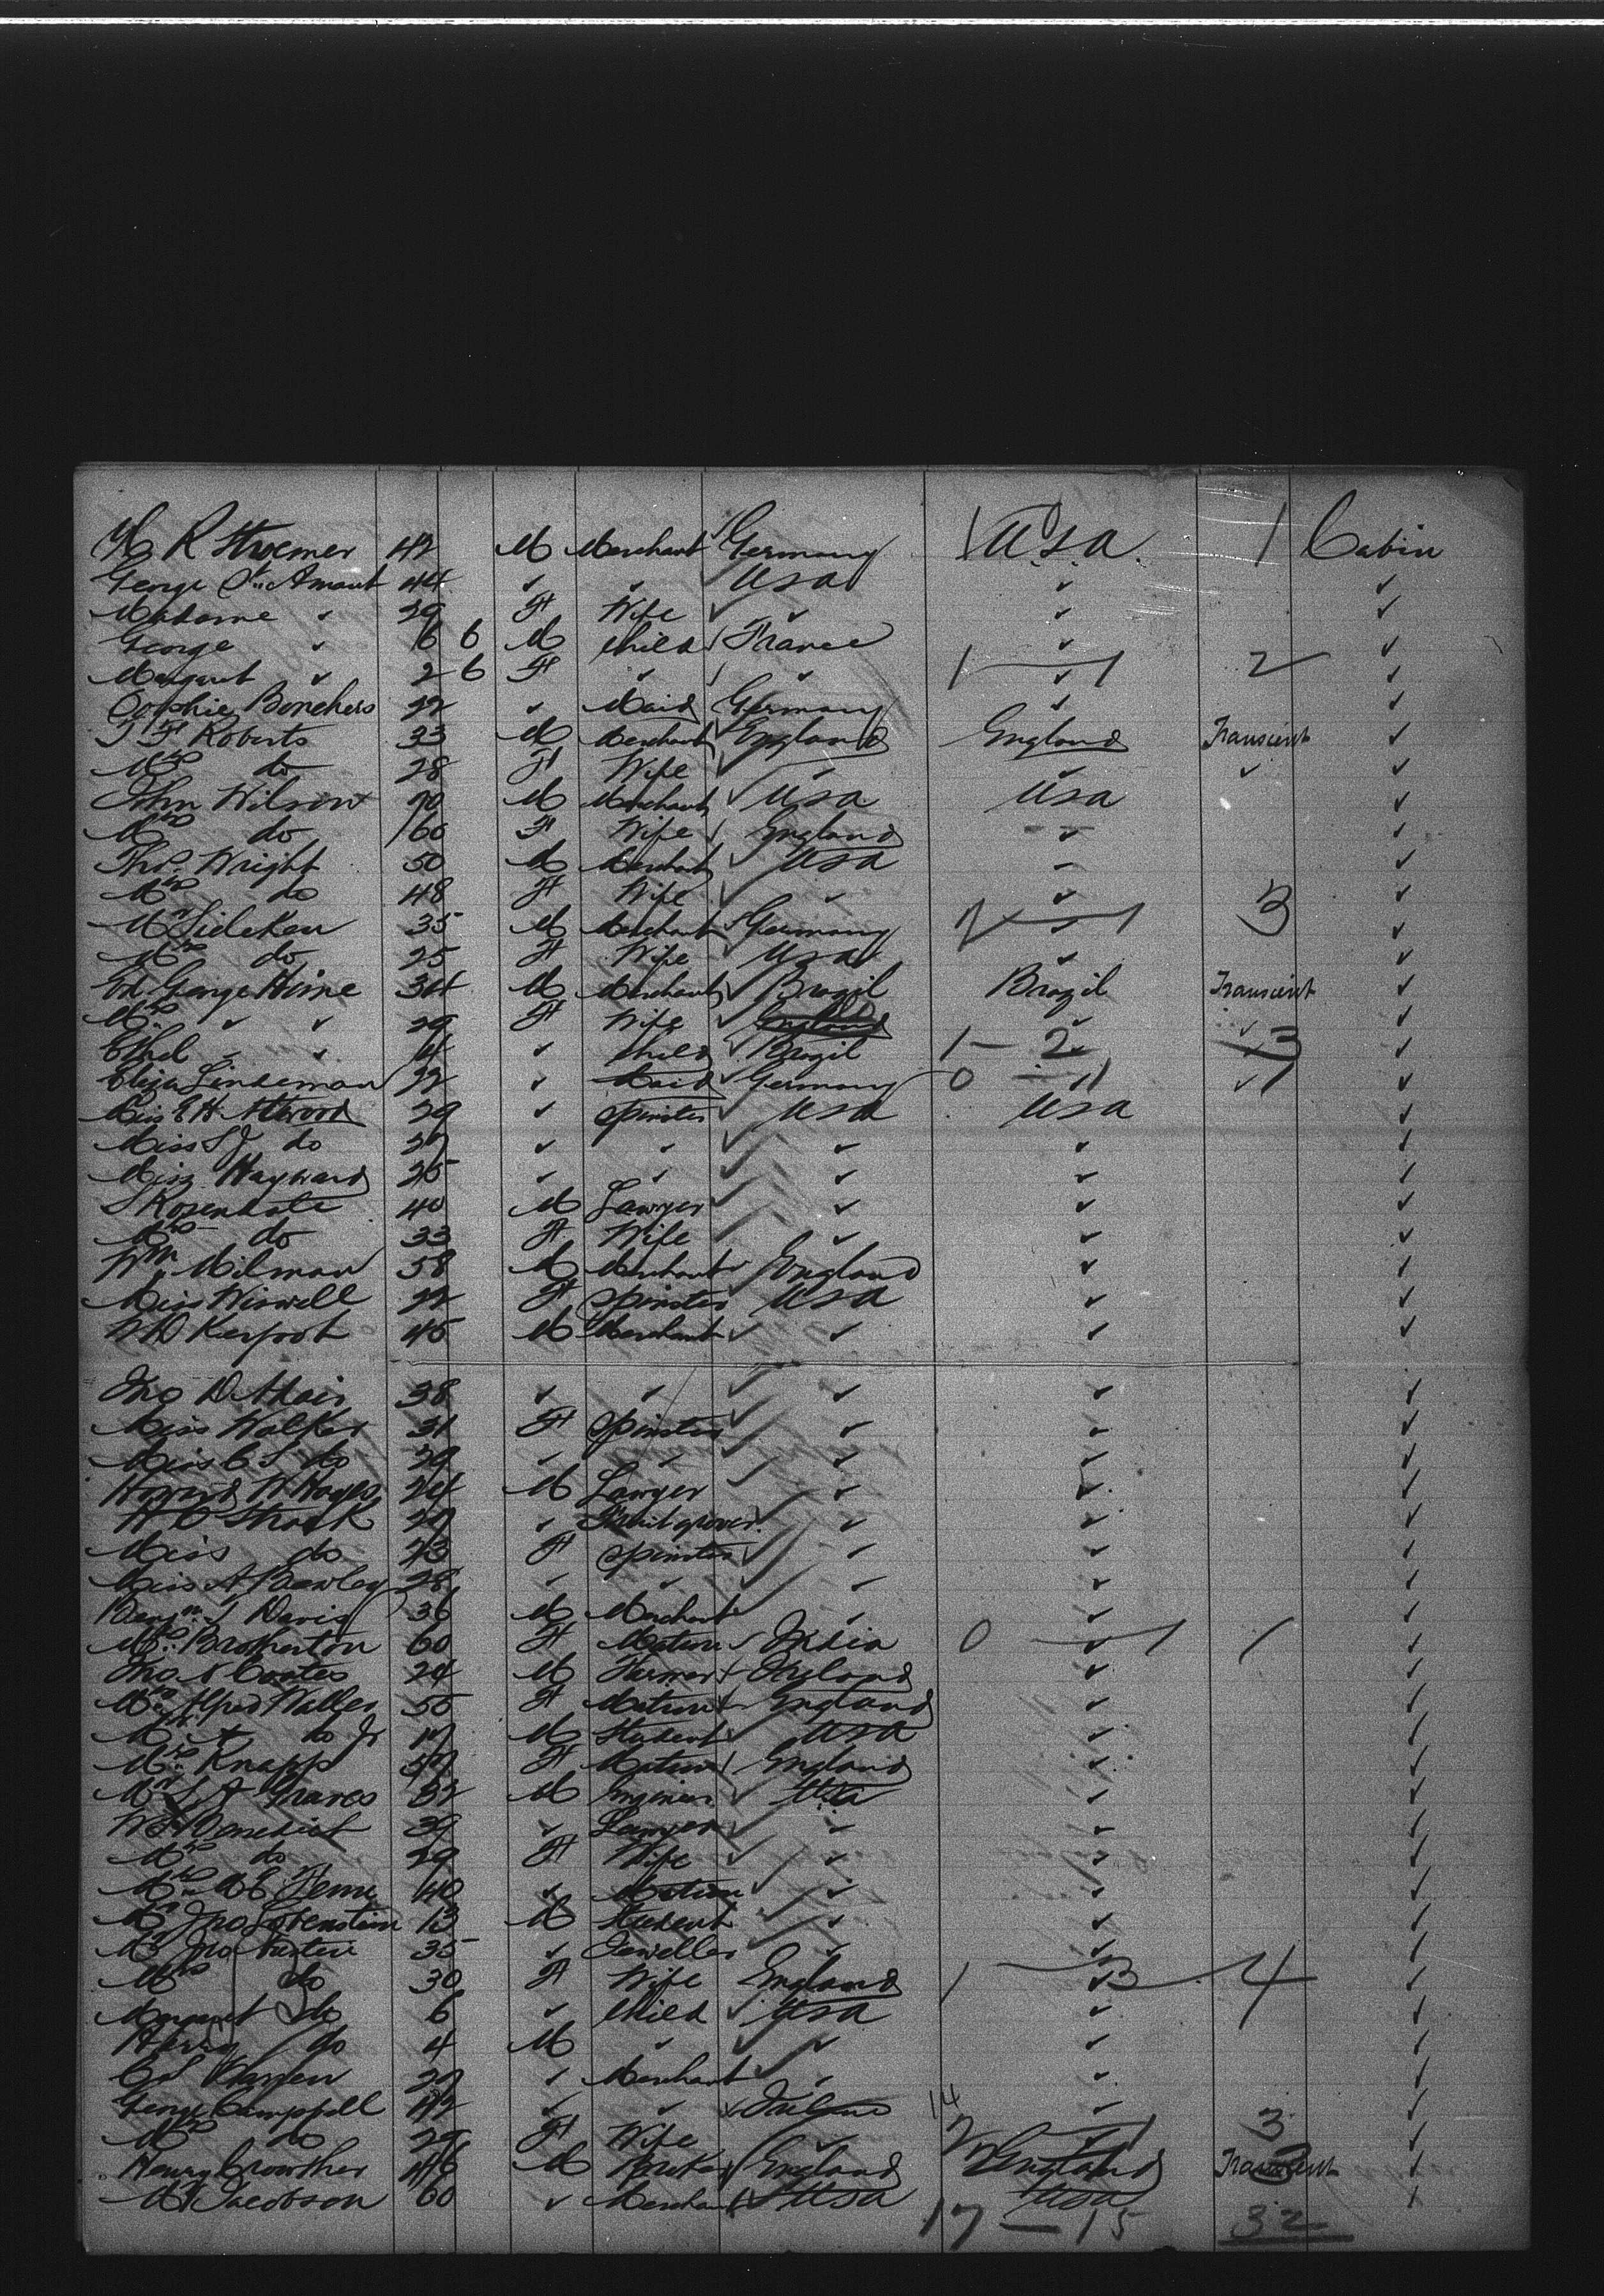 R Stroemer 42 M Merchant Germany U.S.A. 1 Cabin
George St Amant 44 " " USA " "
Madame " 29 F Wife " " "
George " 6 6 M Child France " "
Margaret " 2 6 F " " 1 — 1 2 "
Sophie Borchers 22 " Maid Germany " "
Roberts 33 M Merchant England England Transient "
Mrs do 28 F Wife " " " "
John Wilson 70 M Merchant USA USA "
Mrs do 60 F Wife England " "
Thos. Wright 50 M Merchant USA " "
Mrs do 48 F Wife " " 3 "
Mr Sieleken 35 M Merchant Germany 2 — 1 "
Mrs do 25 F Wife USA " "
Ed. George Hime 34 M Merchant Brazil Brazil Transient "
Mrs " " 29 F Wife England " " "
Ethel " " 4 " Child Brazil 1 — 2 3 "
Eliza Lindeman 22 " Maid Germany 0 — 1 1 "
Miss E H Atwood 29 " Spinster USA USA "
Miss S J do 27 " " " " "
Miss Hayward 25 " " " " "
S Rosendale 40 M Lawyer " " "
Mrs do 33 F Wife " " "
Wm Milman 58 M Merchant England " "
Miss Wiswell 22 F Spinster USA " "
W D Kerfoot 45 M Merchant " " "
Jno D Adair 38 " " " " "
Miss Walker 31 F Spinster " " "
Miss C S do 29 " " " " "
Howard W Hayes 24 M Lawyer " " "
H C 27 " Fruit grower " " "
Miss do 23 F Spinster " " "
Miss A Bewley 28 " " " " "
Benjn. J Davis 36 M Merchant " " "
Mrs. Brotherton 60 F Matron India 0 — 1 1 "
Jno N Coates 24 M Farmer England " "
Mrs Alfred Waller 55 F Matron England " "
Mr A do Jr 17 M Student USA " "
Mrs Knapp 57 F Matron England " "
Mr S J Graves 32 M Engineer USA " "
W S Benedict 39 " Lawyer " " "
Mrs do 29 F Wife " " "
Mrs 40 " Matron " " "
Mr Jno Lovenstein 13 M Student " " "
Mr Jno 35 " Jeweller " " "
Mrs do 30 F Wife England 1 — 3 4 "
Margaret do 6 " Child USA " "
Harry do 4 M " " " "
C S Warren 29 " Merchant " " "
George Campbell 42 " " Ireland 14 " "
Mrs do 29 F Wife " 2 — 1 3 "
Henry Crowther 46 M Broker England England Transient "
Mr Jacobson 60 " Merchant USA USA "
17 — 15 32